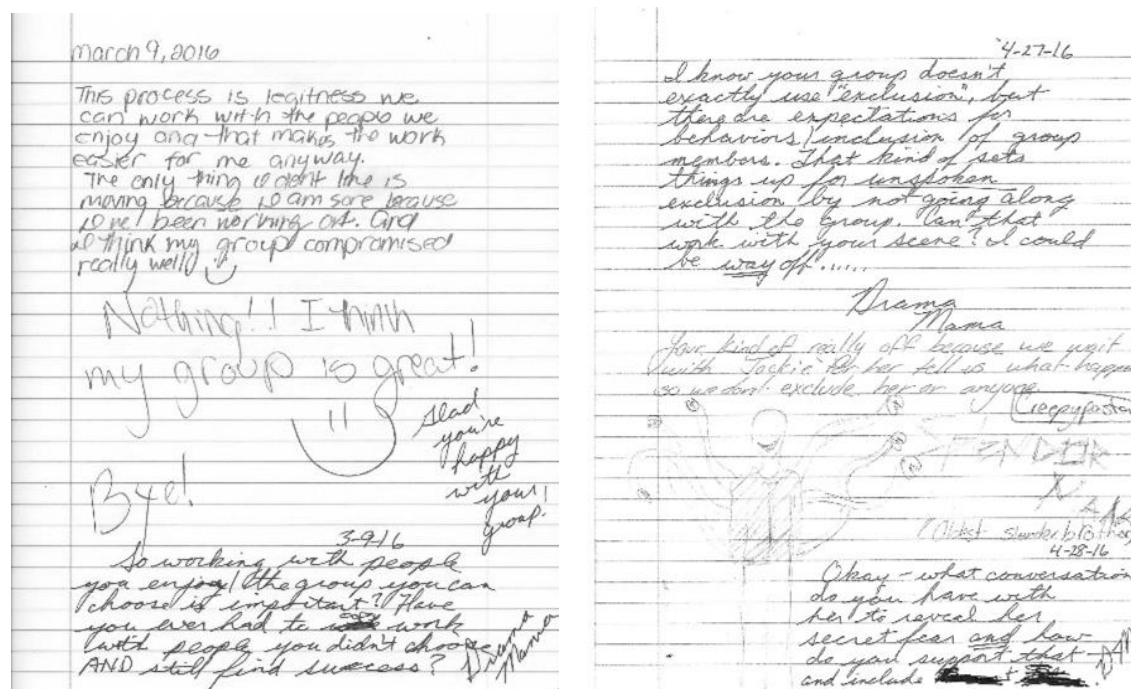 March 9, 2016
This process is legitness we
can work with the people we
enjoy and that makes the work
easier for me anyway.
The only thing I dont like is
moving because I am sore because
I've been working out. And
I think my group compromised
really well!
Nothing!! I think
my group is great!
Glad
you're
happy
with
your
group.
Bye!
3-9-16
So working with people
you enjoy/the group you can
choose is important? Have
you ever had to work
with people you didn't choose
AND still find success?
Drama
Mama
4-27-16
I know your group doesn't
exactly use "exclusion", but
there are expectations for
behaviors/inclusion of group
members. That kind of sets
things up for unspoken
exclusion by not going along
with the group. Can that
work with your scene? I could
be way off......
Drama
Mama
Your kind of really off because we wait
with Jackie for her tell us what happen
so we dont exclude her or anyone
Creepypasta
Oldest slender brother
4-28-16
Okay - what conversation
do you have with
her to reveal her
secret fear and how
do you support that
and include